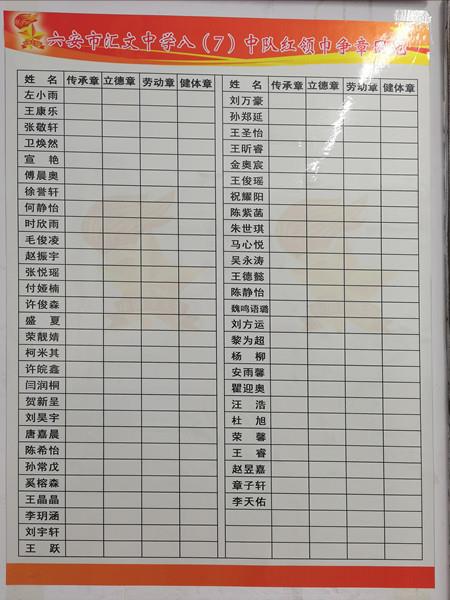 六安市汇文中学八（7）中队红领巾争章
姓 名 传承章 立德章 劳动章 健体章
左小雨
王康乐
张敬轩
卫焕然
宣 艳
傅晨奥
徐誉轩
何静怡
时欣雨
毛俊凌
赵振宇
张悦瑶
付娅楠
许俊森
盛 夏
荣靓婧
柯米其
许皖鑫
闫润桐
贺新呈
刘昊宇
唐嘉晨
陈希怡
孙常戊
奚榕森
王晶晶
李玥涵
刘宇轩
王 跃
姓 名 传承章 立德章 劳动章 健体章
刘万豪
孙郑延
王圣怡
王昕睿
金奥宸
王俊瑶
祝耀阳
陈紫菡
朱世琪
马心悦
吴永涛
王德懿
陈静怡
魏鸣语璐
刘方运
黎为超
杨 柳
安雨馨
瞿迎奥
汪 浩
杜 旭
荣 馨
王 睿
赵昱嘉
章子轩
李天佑